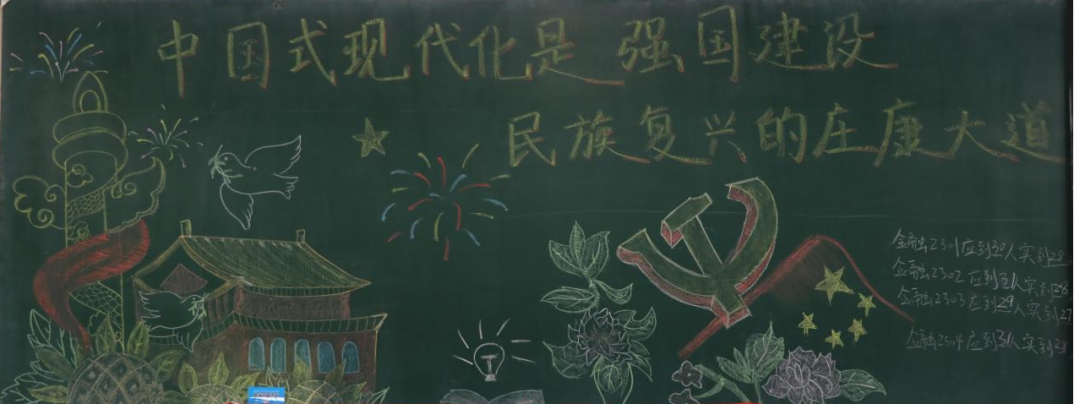 中国式现代化是强国建设
民族复兴的庄康大道
金融2301应到30人实到28
金融2302应到 人实到28
金融2303应到29人实到27
金融2304应到31人实到28